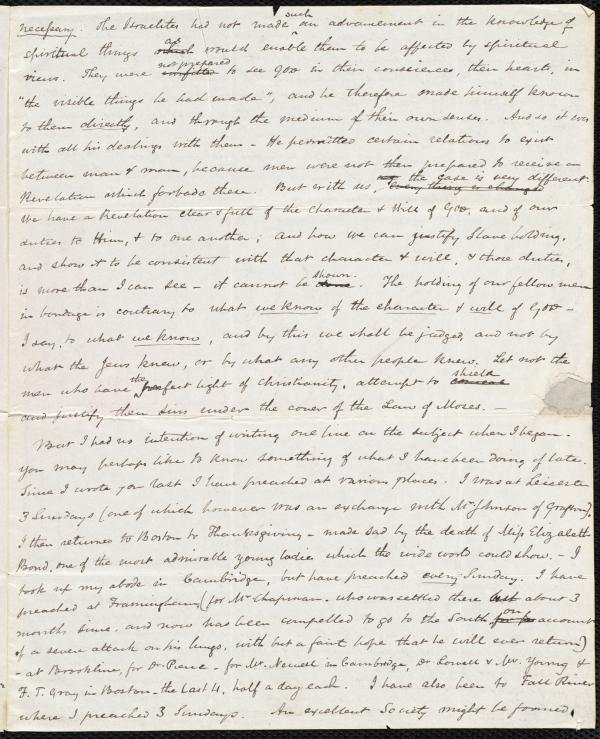 necessary. The Israelites had not made such an advancement in the knowledge of
spiritual things as would enable them to be affected by spiritual
views. They were not prepared to see God in their consciences, their hearts, in
"the visible things he had made", and he therefore made himself known
to them directly, and through the medium of their own senses. And so it was
with all his dealings with them - He permitted certain relations to exist
between man & man, because men were not then prepared to receive a
Revelation which forbade them. But with us, the case is very different.
We have a Revelation clear & full of the Character & Will of God, and of our
duties to Him, & to one another; and how we can justify Slave holding,
and show it to be consistent with that character & will, & those duties,
is more than I can see - it cannot be shown. The holding of our fellow men
in bondage is contrary to what we know of the character & will of God -
I say, to what we know, and by this we shall be judged, and not by
what the Jews knew, or by what any other people knew. Let not the
men who have the perfect light of Christianity, attempt to shield
and justify their sins under the cover of the Law of Moses. -
But I had no intention of writing one line on the subject when I began.
You may perhaps like to know something of what I have been doing of late.
Since I wrote you last I have preached at various places. I was at Leicester
3 Sundays (one of which however was an exchange with Mr Johnson of Grafton).
I then returned to Boston to Thanksgiving - made sad by the death of Miss Elizabeth
Bond, one of the most admirable young ladies which the wide world could show. - I
took up my abode in Cambridge, but have preached every Sunday. I have
preached at Framingham (for Mr Chapman. who was settled there about 3
months since, and now has been compelled to go to the South on account
of a severe attack on his lungs, with but a faint hope that he will ever return)
- at Brookline, for Dr Peirce - for Mr. Newell in Cambridge, Dr Lowell & Mr. Young &
F. T. Gray in Boston - the last 4, half a day each. I have also been to Fall River
where I preached 3 Sundays. An excellent Society might be formed